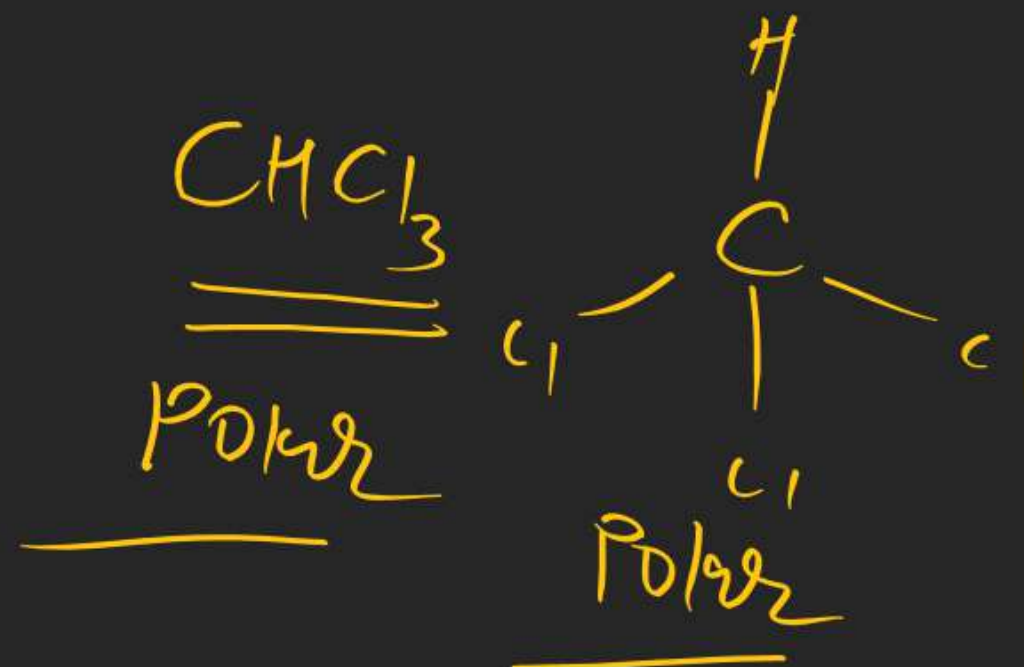 CHCl3
Polar
H
C
Cl
C
Cl
Polar